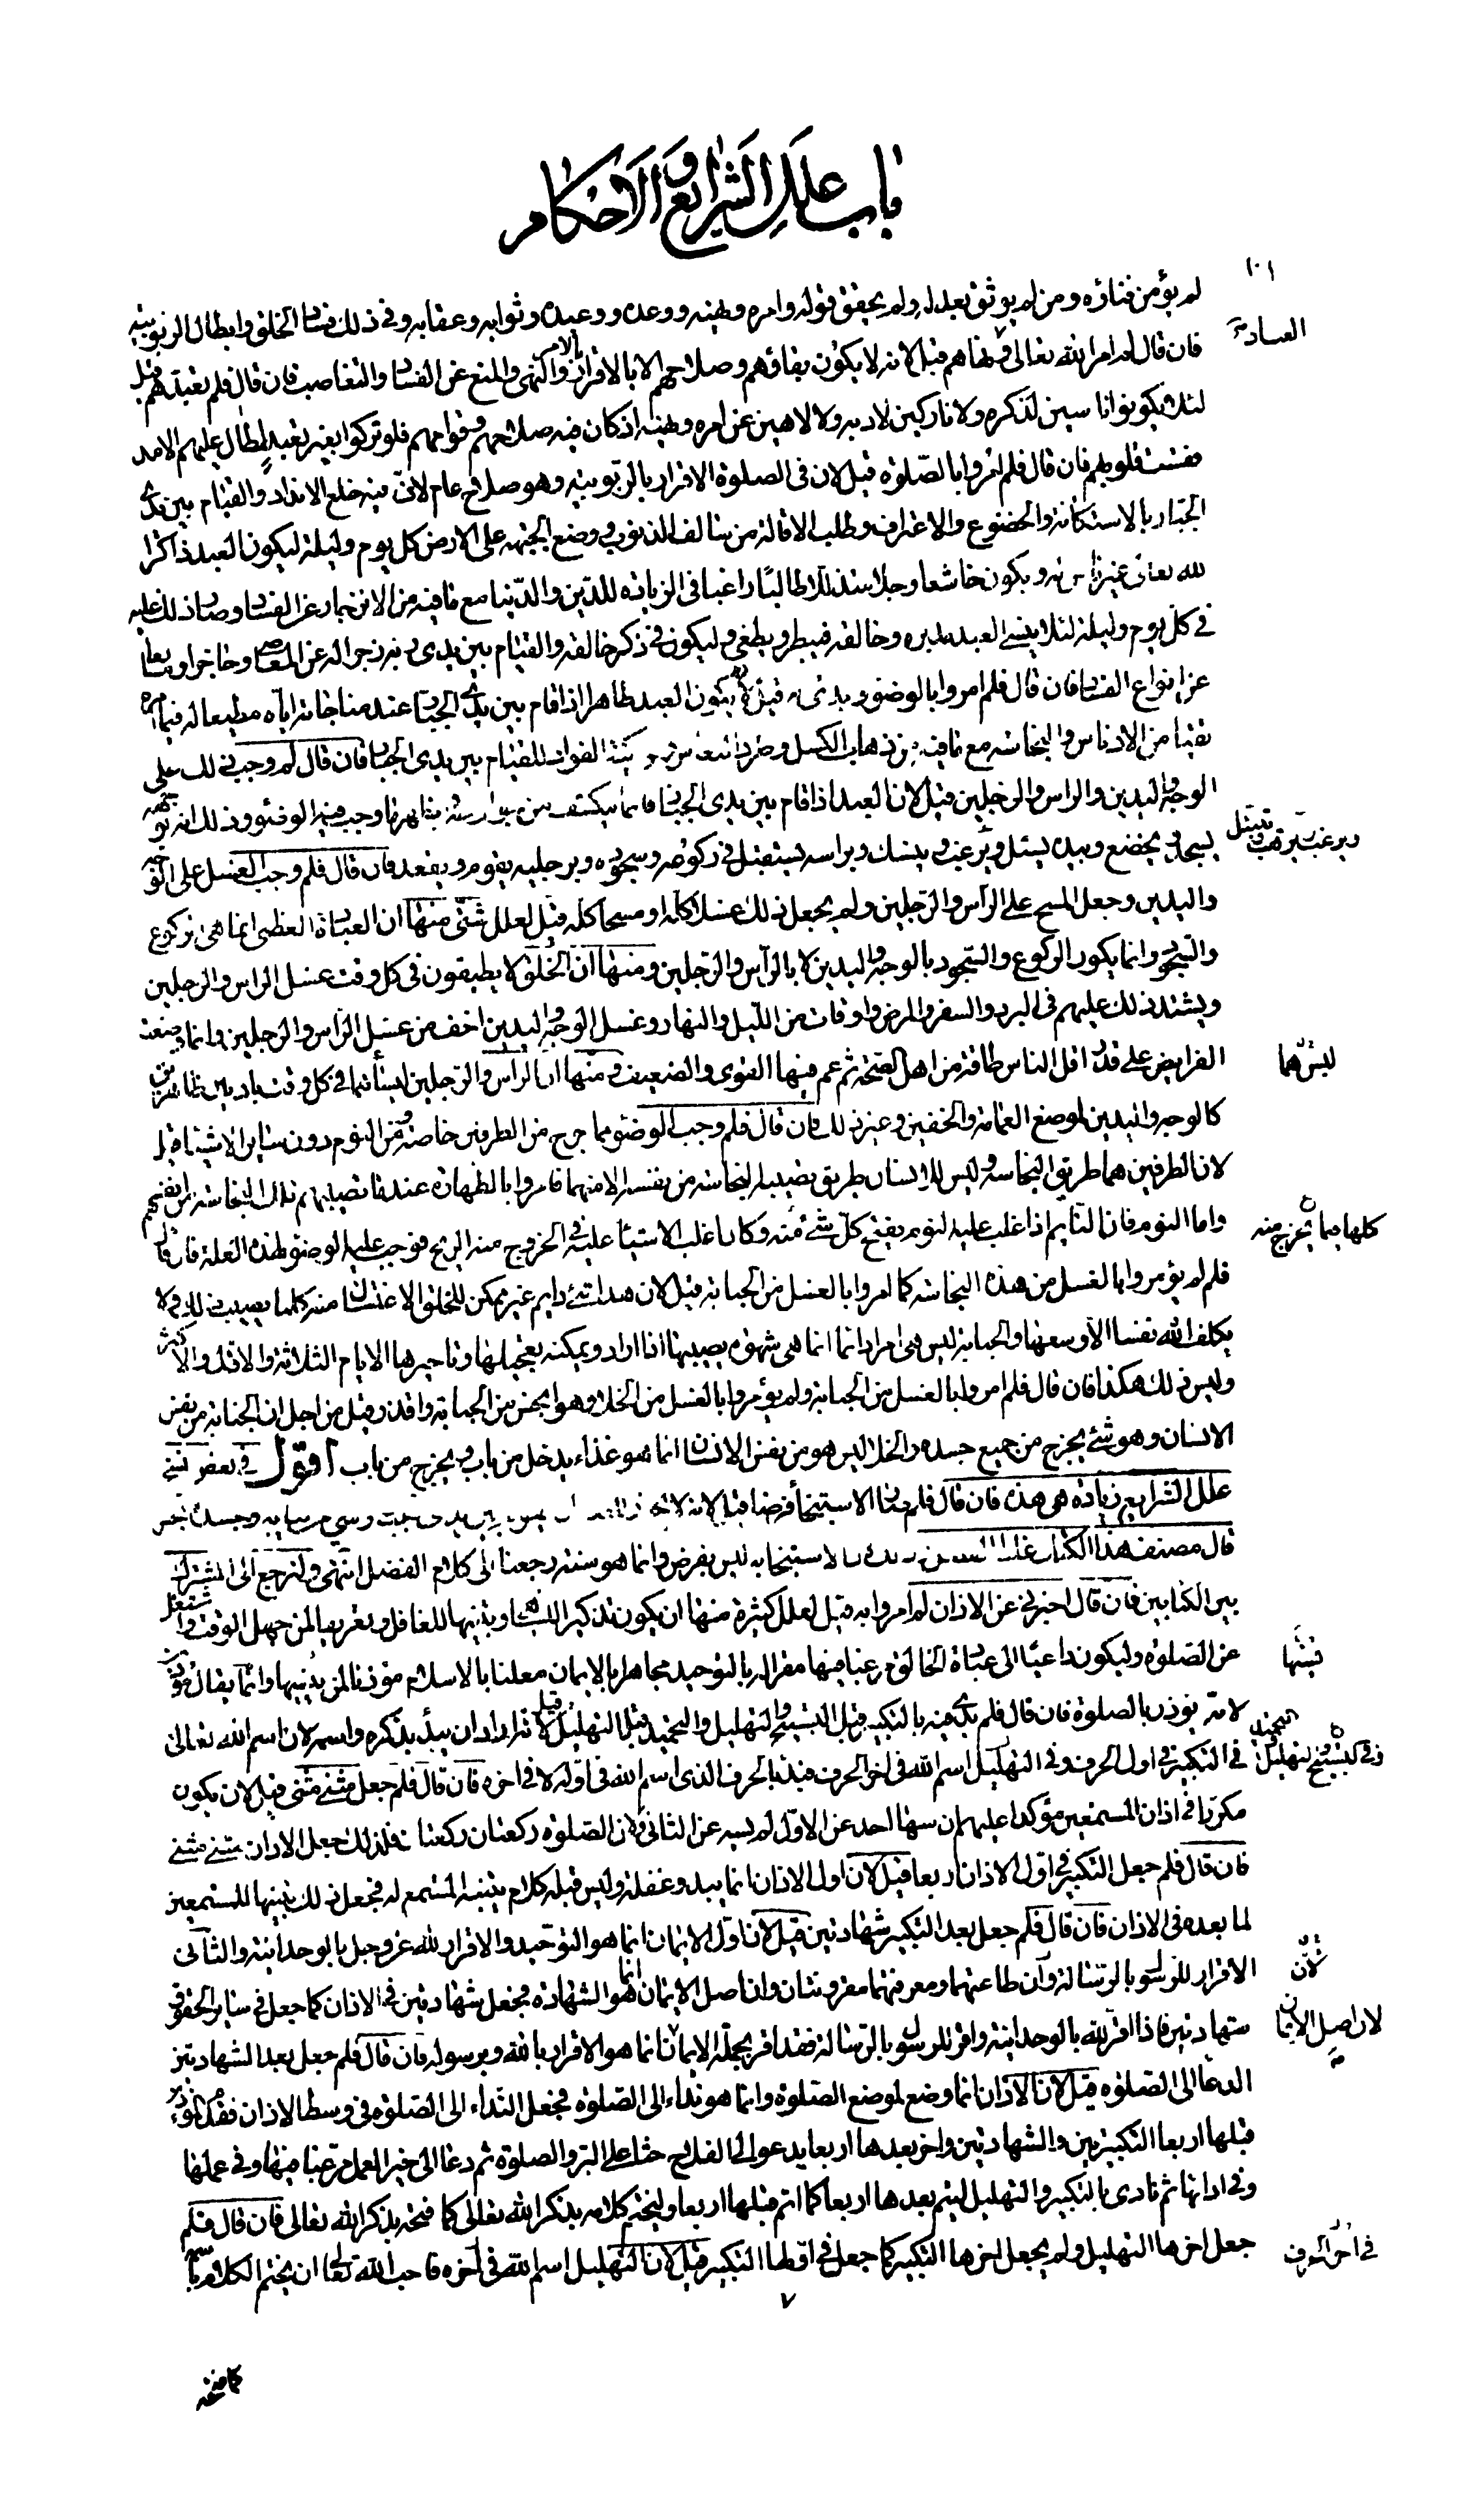 باب علل الشرايع و الاحكام
١٠١
لم يؤمن فناؤه ومن لم يوثق بعدله ولم يحقق قوله وامره ونهيه ووعده ووعيده وثوابه وعقابه وفي ذلك فساد الخلق وابطال الربوبية
العباد
فان قال لم امر الله تعالى ونهاهم قيل لانه لا يكون بقاؤهم وصلاحهم الا بالامر والنهى والمنع عن الفساد والتغاصب فان قال فلم تعبدهم قيل
لئلا يكونوا ناسين لذكره ولا تاركين لادبه ولا لاهين عن امره ونهيه اذ كان فيه صلاحهم وقوامهم فلو تركوا بغير تعبد لطال عليهم الامد
فقست قلوبهم فان قال فلم امروا بالصلوة قيل لان في الصلوة الاقرار بالربوبية وهو صلاح عام لان فيه خلع الانداد والقيام بين يدى
الجبار بالاستكانة والخضوع والاعتراف وطلب الاقالة من سالف الذنوب ووضع الجبهة على الارض كل يوم وليلة ليكون العبد ذاكرا
لله تعالى غير ناس له ويكون خاشعا وجلا متذللا طالبا راغبا في الزيادة للدين والدنيا مع ما فيه من الانزجار عن الفساد وصار ذلك عليه
في كل يوم وليلة لئلا ينسى العبد مدبره وخالقه فيبطر ويطغى وليكون في ذكر خالقه والقيام بين يدى ربه زجرا له عن المعاصى وحاجزا ومانعا
عن انواع الفساد فان قال فلم امروا بالوضوء وبدئ به قيل لان يكون العبد طاهرا اذا قام بين يدى الجبار عند مناجاته اياه مطيعا له فيما امره
نقيا من الادناس والنجاسة مع ما فيه من ذهاب الكسل وطرد النعاس وتزكية الفؤاد للقيام بين يدى الجبار فان قال لم وجب ذلك على
الوجه واليدين والراس والرجلين قيل لان العبد اذا قام بين يدى الجبار فانما ينكشف من جوارحه ويظهر ما وجب فيه الوضوء وذلك انه بوجهه
ويرغب ويرهب ويتبتل
يسجد ويخضع وبيده يسئل ويرغب وينسك وبراسه يستقبل في ركوعه وسجوده وبرجليه يقوم ويقعد فان قال فلم وجب الغسل على الوجه
واليدين وجعل المسح على الرأس والرجلين ولم يجعل ذلك غسلا كله او مسحا كله قيل لعلل شتى منها ان العبادة العظمى انما هى الركوع
والسجود وانما يكون الركوع والسجود بالوجه واليدين لا بالرأس والرجلين ومنها ان الخلق لا يطيقون في كل وقت غسل الراس والرجلين
ويشتد ذلك عليهم في البرد والسفر والمرض واوقات من الليل والنهار وغسل الوجه واليدين اخف من غسل الراس والرجلين وانما وضعت
الفرايض على قدر اقل الناس طاقة من اهل الصحة ثم عم فيها القوى والضعيف ومنها ان الراس والرجلين ليسا هما في كل وقت باديين ظاهرين
ليس هما
كالوجه واليدين لموضع العمامة والخفين وغير ذلك فان قال فلم وجب الوضوء مما خرج من الطرفين خاصة ومن النوم دون ساير الاشياء قيل
لان الطرفين هما طريق النجاسة وليس للانسان طريق تصيبه النجاسة من نفسه الا منهما فامروا بالطهارة عند ما تصيبهم تلك النجاسة من انفسهم
كلها مما يخرج منه
واما النوم فان النائم اذا غلب عليه النوم يفتح كل شئ منه وكان اغلب الاشياء عليه في الخروج منه الريح فوجب عليه الوضوء لهذه العلة فان قال
فلم لم يؤمروا بالغسل من هذه النجاسة كما امروا بالغسل من الجنابة قيل لان هذا شئ دايم غير ممكن للخلق الاغتسال منه كلما يصيب ذلك ولا
يكلف الله نفسا الا وسعها والجنابة ليس هى امرا دائما انما هى شهوة يصيبها اذا اراد ويمكنه تعجيلها وتاخيرها الايام الثلاثة والاقل والاكثر
وليس ذلك هكذا فان قال فلم امروا بالغسل من الجنابة ولم يؤمروا بالغسل من الخلاء وهو انجس من الجنابة واقذر قيل من اجل ان الجنابة من نفس
الانسان وهو شئ يخرج من جميع جسده والخلاء ليس هو من نفس الانسان انما هو غذاء يدخل من باب ويخرج من باب اقول في بعض نسخ
علل الشرايع زيادة هى هذه فان قال فلم صار الاستنجاء فرضا قيل لانه لا يجوز
قال مصنف هذا الكتاب غلط الفضل وذلك لان الاستنجاء به ليس بفرض وانما هو سنة رجعنا الى كلام الفضل انتهى ولنرجع الى المشترك
بين الكتابين فان قال اخبرني عن الاذان لم امروا به قيل لعلل كثيرة منها ان يكون تذكيرا للساهى وتنبيها للغافل وتعريفا لمن جهل الوقت واشتغل
عن الصلوة وليكون داعيا الى عبادة الخالق مرغبا فيها مقرا له بالتوحيد مجاهرا بالايمان معلنا بالاسلام مؤذنا لمن ينسيها وانما يقال مؤذن
لانه يؤذن بالصلوة فان قال فلم بدئ فيه بالتكبير قبل التسبيح والتهليل والتحميد قيل لانه اراد ان يبدأ بذكره واسمه لان اسم الله تعالى
في التكبير في اول الحرف وفي التهليل اسم الله في اخر الحرف فبدأ بالحرف الذى اسم الله في اوله لا في اخره فان قال فلم جعل مثنى مثنى قيل لان يكون
وفي التسبيح والتهليل والتحميد
مكررا في اذان المستمعين مؤكدا عليهم ان سها احد عن الاول لم يسه عن الثانى ولان الصلوة ركعتان ركعتان فلذلك جعل الاذان مثنى مثنى
فان قال فلم جعل التكبير في اول الاذان اربعا قيل لان اول الاذان انما يبدو غفلة وليس قبله كلام يتنبه المستمع له فجعل ذلك تنبيها للمستمعين
لما بعده في الاذان فان قال فلم جعل بعد التكبير شهادتين قيل لان اول الايمان انما هو التوحيد والاقرار لله عز وجل بالوحدانية والثانى
الاقرار للرسول بالرسالة وان طاعتهما ومعرفتهما مقرونتان وان اصل الايمان انما هو الشهادة فجعل شهادتين في الاذان كما جعل في ساير الحقوق
لان
لان اصل الايمان
شهادتين فاذا اقر لله بالوحدانية واقر للرسول بالرسالة فقد اقر بجملة الايمان لان الايمان انما هو الاقرار بالله وبرسوله فان قال فلم جعل بعد الشهادتين
الدعا الى الصلوة قيل لان الاذان انما وضع لموضع الصلوة وانما هو نداء الى الصلوة فجعل النداء الى الصلوة في وسط الاذان فقدم المؤذن
قبلها اربعا التكبيرتين والشهادتين واخر بعدها اربعا يدعو الى الفلاح حثا على البر والصلوة ثم دعا الى خير العمل مرغبا فيها وفي عملها
وفي ادائها ثم نادى بالتكبير والتهليل ليتم بعدها اربعا كما اتم قبلها اربعا وليختم كلامه بذكر الله تعالى كما فتحه بذكر الله تعالى فان قال فلم
جعل اخرها التهليل ولم يجعل اخرها التكبير كما جعل في اولها التكبير قيل لان التهليل اسم الله في آخره فاحب الله تعالى ان يختم الكلام باسمه
في اخر الحرف
كما فتحه